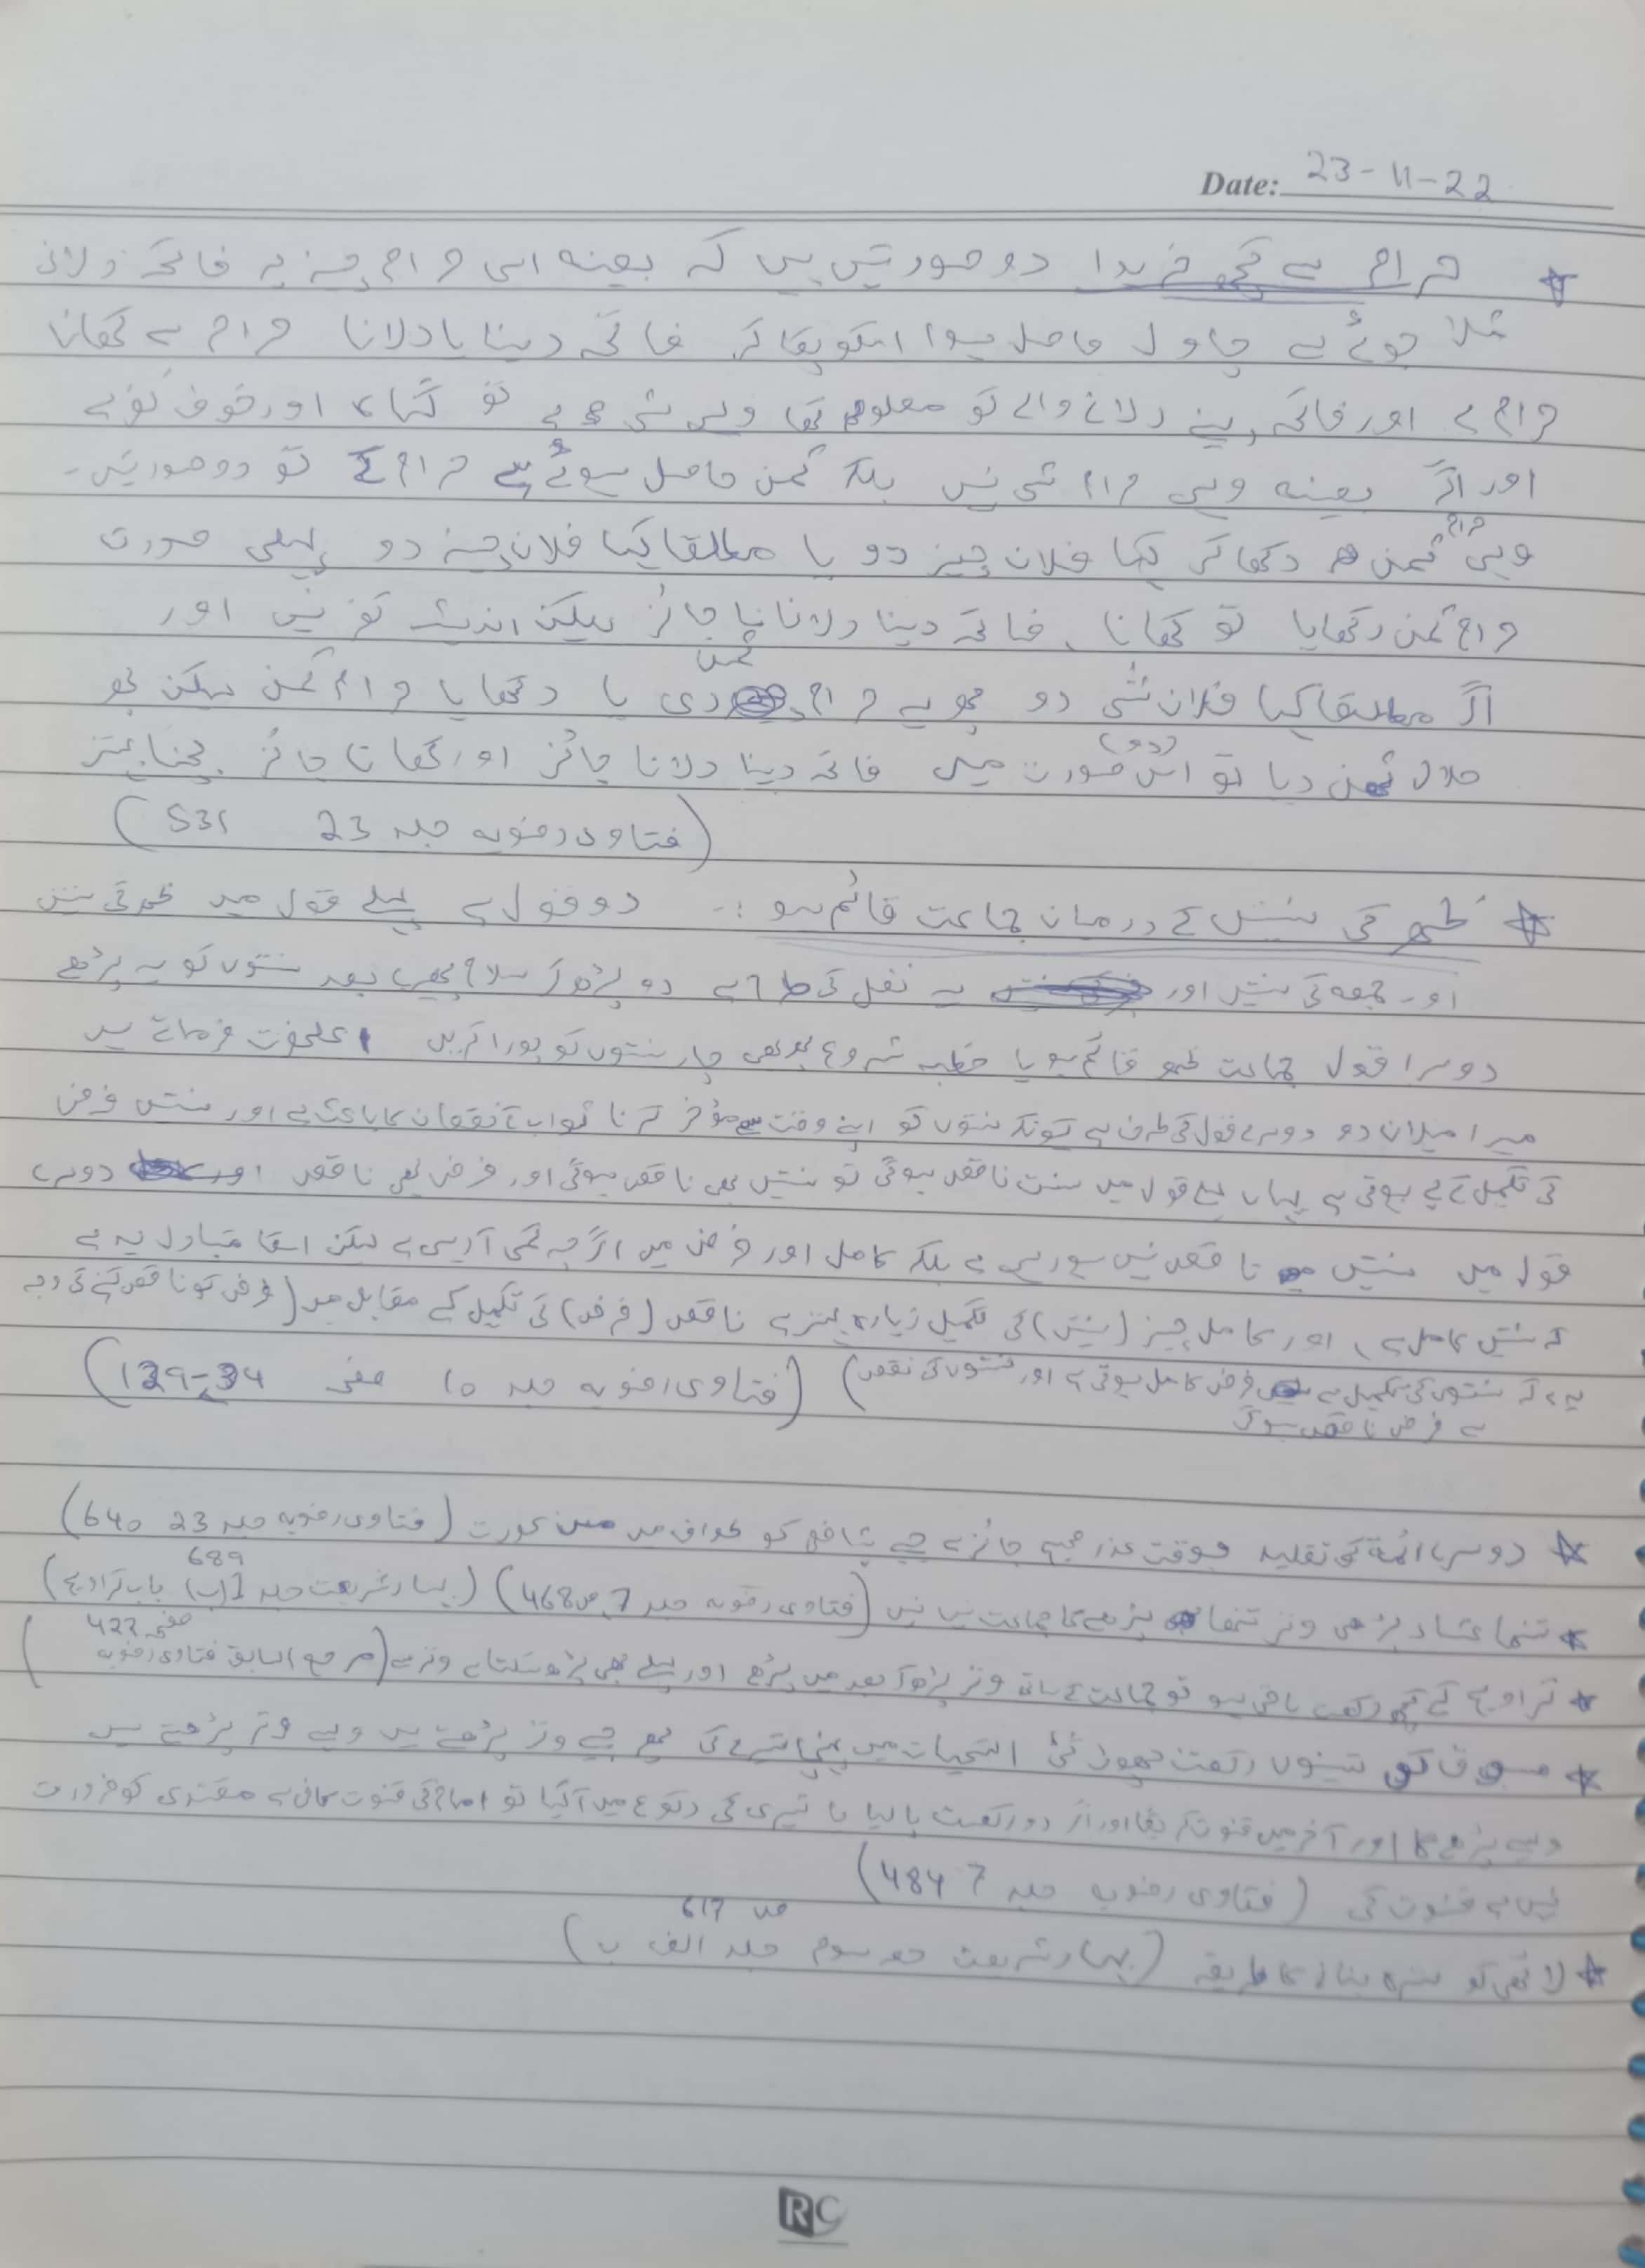 Date: 23-11-22
☆ حرام سے کچھ خریدا دو صورتیں ہیں کہ بعینہ اسی حرام چیز پہ فاتحہ دلائی
مثلا جوئے سے چاول حاصل ہوا اسکو پکا کر فاتحہ دینا یا دلانا حرام ہے کھانا
حرام ہے اور فاتحہ دینے دلانے والے کو معلوم تھا وہی شی ہے تو گناہ اور خوف کفر ہے
اور اگر بعینہ وہی حرام شی نہیں بلکہ ثمن حاصل ہوئے حرام کے تو دو صورتیں۔
وہی حرام ثمن دکھا کر کہا فلان چیز دو یا مطلقا کہا فلان چیز دو پہلی صورت
حرام ثمن دکھایا تو کھانا، فاتحہ دینا دلانا نا جائز لیکن اندیشہ کفر نہیں اور
اگر مطلقا کہا فلان شی دو پھر یہ حرام ثمن دی یا دکھایا حرام ثمن لیکن پھر
حلال ثمن دیا تو اس صورت (دو) میں فاتحہ دینا دلانا جائز اور کھانا جائز بچنا بہتر
(فتاوی رضویہ جلد 23 531)
☆ ظہر کی سنتیں کے درمیان جماعت قائم ہو :- دو قول ہے پہلے قول میں ظہر کی سنتیں
اور جمعہ کی سنتیں اور یہ نفل کی طرح ہے دو پڑھ کر سلام پھیرے بعد سنتوں کو یہ پڑھے
دوسرا قول جماعت ظہر قائم ہو یا خطبہ شروع پھر بھی چار سنتوں کو پورا کریں اعلحضرت فرماتے ہیں
میرا میلان دو دوسرے قول کی طرف ہے کیونکہ سنتوں کو اپنے وقت سے مؤخر کرنا ثواب کے نقصان کا باعث ہے اور سنتیں فرض
کی تکمیل کے لیے ہوتی ہے یہاں پہلے قول میں سنت ناقص ہوگی تو سنتیں بھی ناقص ہوگی اور فرض بھی ناقص اور دوسرے
قول میں سنتیں ناقص نہیں ہو رہی ہے بلکہ کامل اور فرض میں اگرچہ کمی آ رہی ہے لیکن اسکا متبادل یہ ہے
کہ سنتیں کامل ہے، اور کامل چیز (سنتیں) کی تکمیل زیادہ بہتر ہے ناقص (فرض) کی تکمیل کے مقابل میں (فرض کو ناقص کہنے کی وجہ
یہ ہے کہ سنتوں کی تکمیل سے فرض کامل ہوتی ہے اور سنتوں کی نقص) (فتاوی رضویہ جلد 10 صفحہ 129-34)
سے فرض ناقص ہوگی
☆ دوسرے ائمۃ کی تقلید بوقت عذر صحیح جائز ہے جیسے شافعی کو طواف میں مس عورت (فتاوی رضویہ جلد 23 640)
☆ تنہا عشاء پڑھی وتر تنہا پڑھے گا جماعت سے نہیں (فتاوی رضویہ جلد 7 ص 468) (بہار شریعت جلد 1 (ب) باب تراویح) 689
☆ تراویح کے کچھ رکعت باقی ہو تو جماعت کے ساتھ وتر پڑھ کر بعد میں پڑھے اور پہلے بھی پڑھ سکتا ہے وتر سے (مرجع السابق فتاوی رضویہ صفحہ 422)
☆ مسبوق کو تینوں رکعت چھوٹ گئی التحیات میں پہنچا تیسرے کی پھر جیسے وتر پڑھتے ہیں ویسے وتر پڑھتے ہیں
ویسے پڑھے گا اور آخر میں قنوت پڑھیگا اور اگر دو رکعت پا لیا یا تیسری کی رکوع میں آگیا تو امام کی قنوت کافی ہے مقتدی کو ضرورت
نہیں ہے قنوت کی (فتاوی رضویہ جلد 7 484)
☆ لاٹھی کو سترہ بنانے کا طریقہ (بہار شریعت حصہ سوم جلد الف ب) ص 617
RC